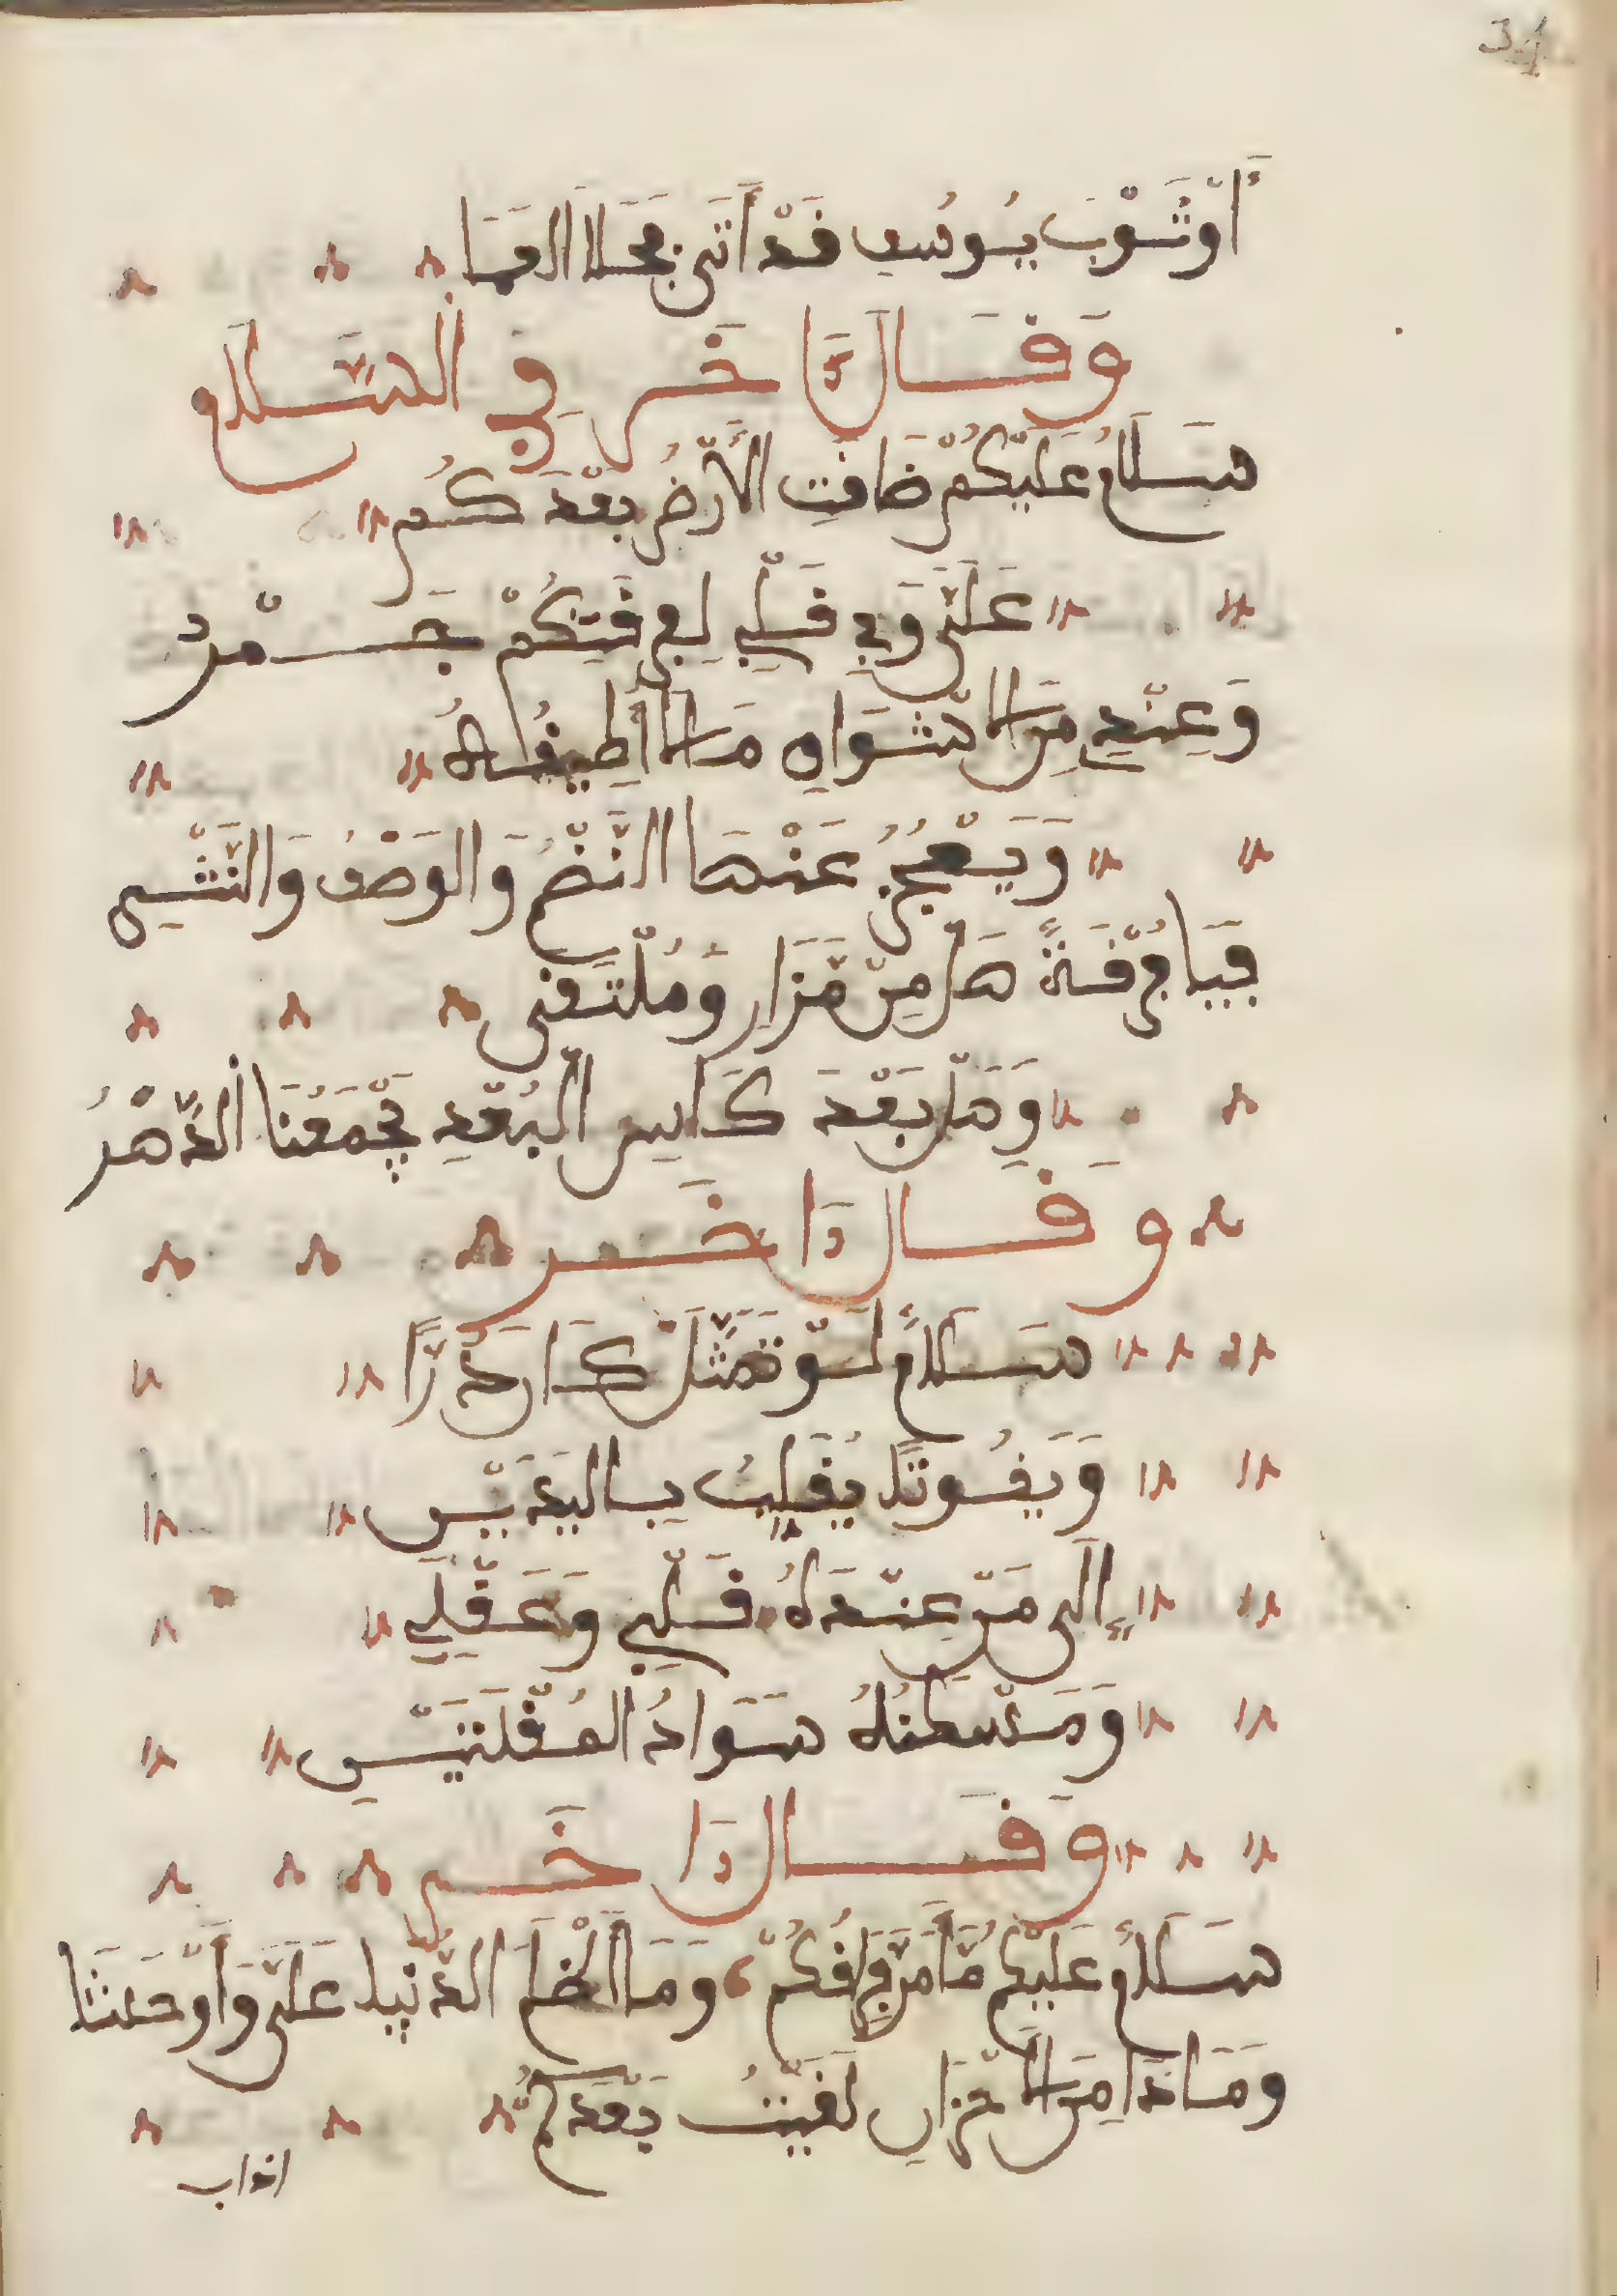 34
أَوْ ثَوْبَ يُوسُفٍ قَدْ أَتَى فَجَلَا العَمَا
وَقَالَ ءَاخَر فِي السَّلَام
سَلَامٌ عَلَيْكُمْ ضَاقَتِ الْأَرْضُ بَعْدَكُم
عَلَيَّ وَفِي قَلْبِي لِفُرْقَتِكُمْ جَمْرُ
وَعِنْدِي مِنَ الْأَشْوَاقِ مَا لَا أُطِيقُهُ
وَيَعْجِزُ عَنْهَا النَّظْمُ وَالوَصْفُ وَالنَّثْرُ
فَيَا فُرْقَةً هَلْ مِنْ مَّزَارٍ وَمُلْتَقَى
وَهَلْ بَعْدَ كَاسِ الْبُعْدِ يَجْمَعُنَا الدَّهْرُ
وقال ءَاخَر
سَلَامٌ لَوْ تَمَثَّلَ كَانَ دُرًّا
وَيَفُوتًا يُقَلَّبُ بِاليَدَيْنِ
إِلَى مَنْ عِنْدَهُ قَلْبِي وَعَقْلِي
وَمَسْكَنُهُ سَوَادُ المُقْلَتَيْنِ
وَقَال ءَاخَر
سَلَامٌ عَلَيْكُمْ مَّا أَمَرَّ فِرَاقَكُمْ، وَمَا أَظْلَمَ الدُّنْيَا عَلَيَّ وَأَوْحَشَا
وَمَاذَا مِنَ الْأَحْزَانِ لَقِيتُ بَعْدَكُمْ